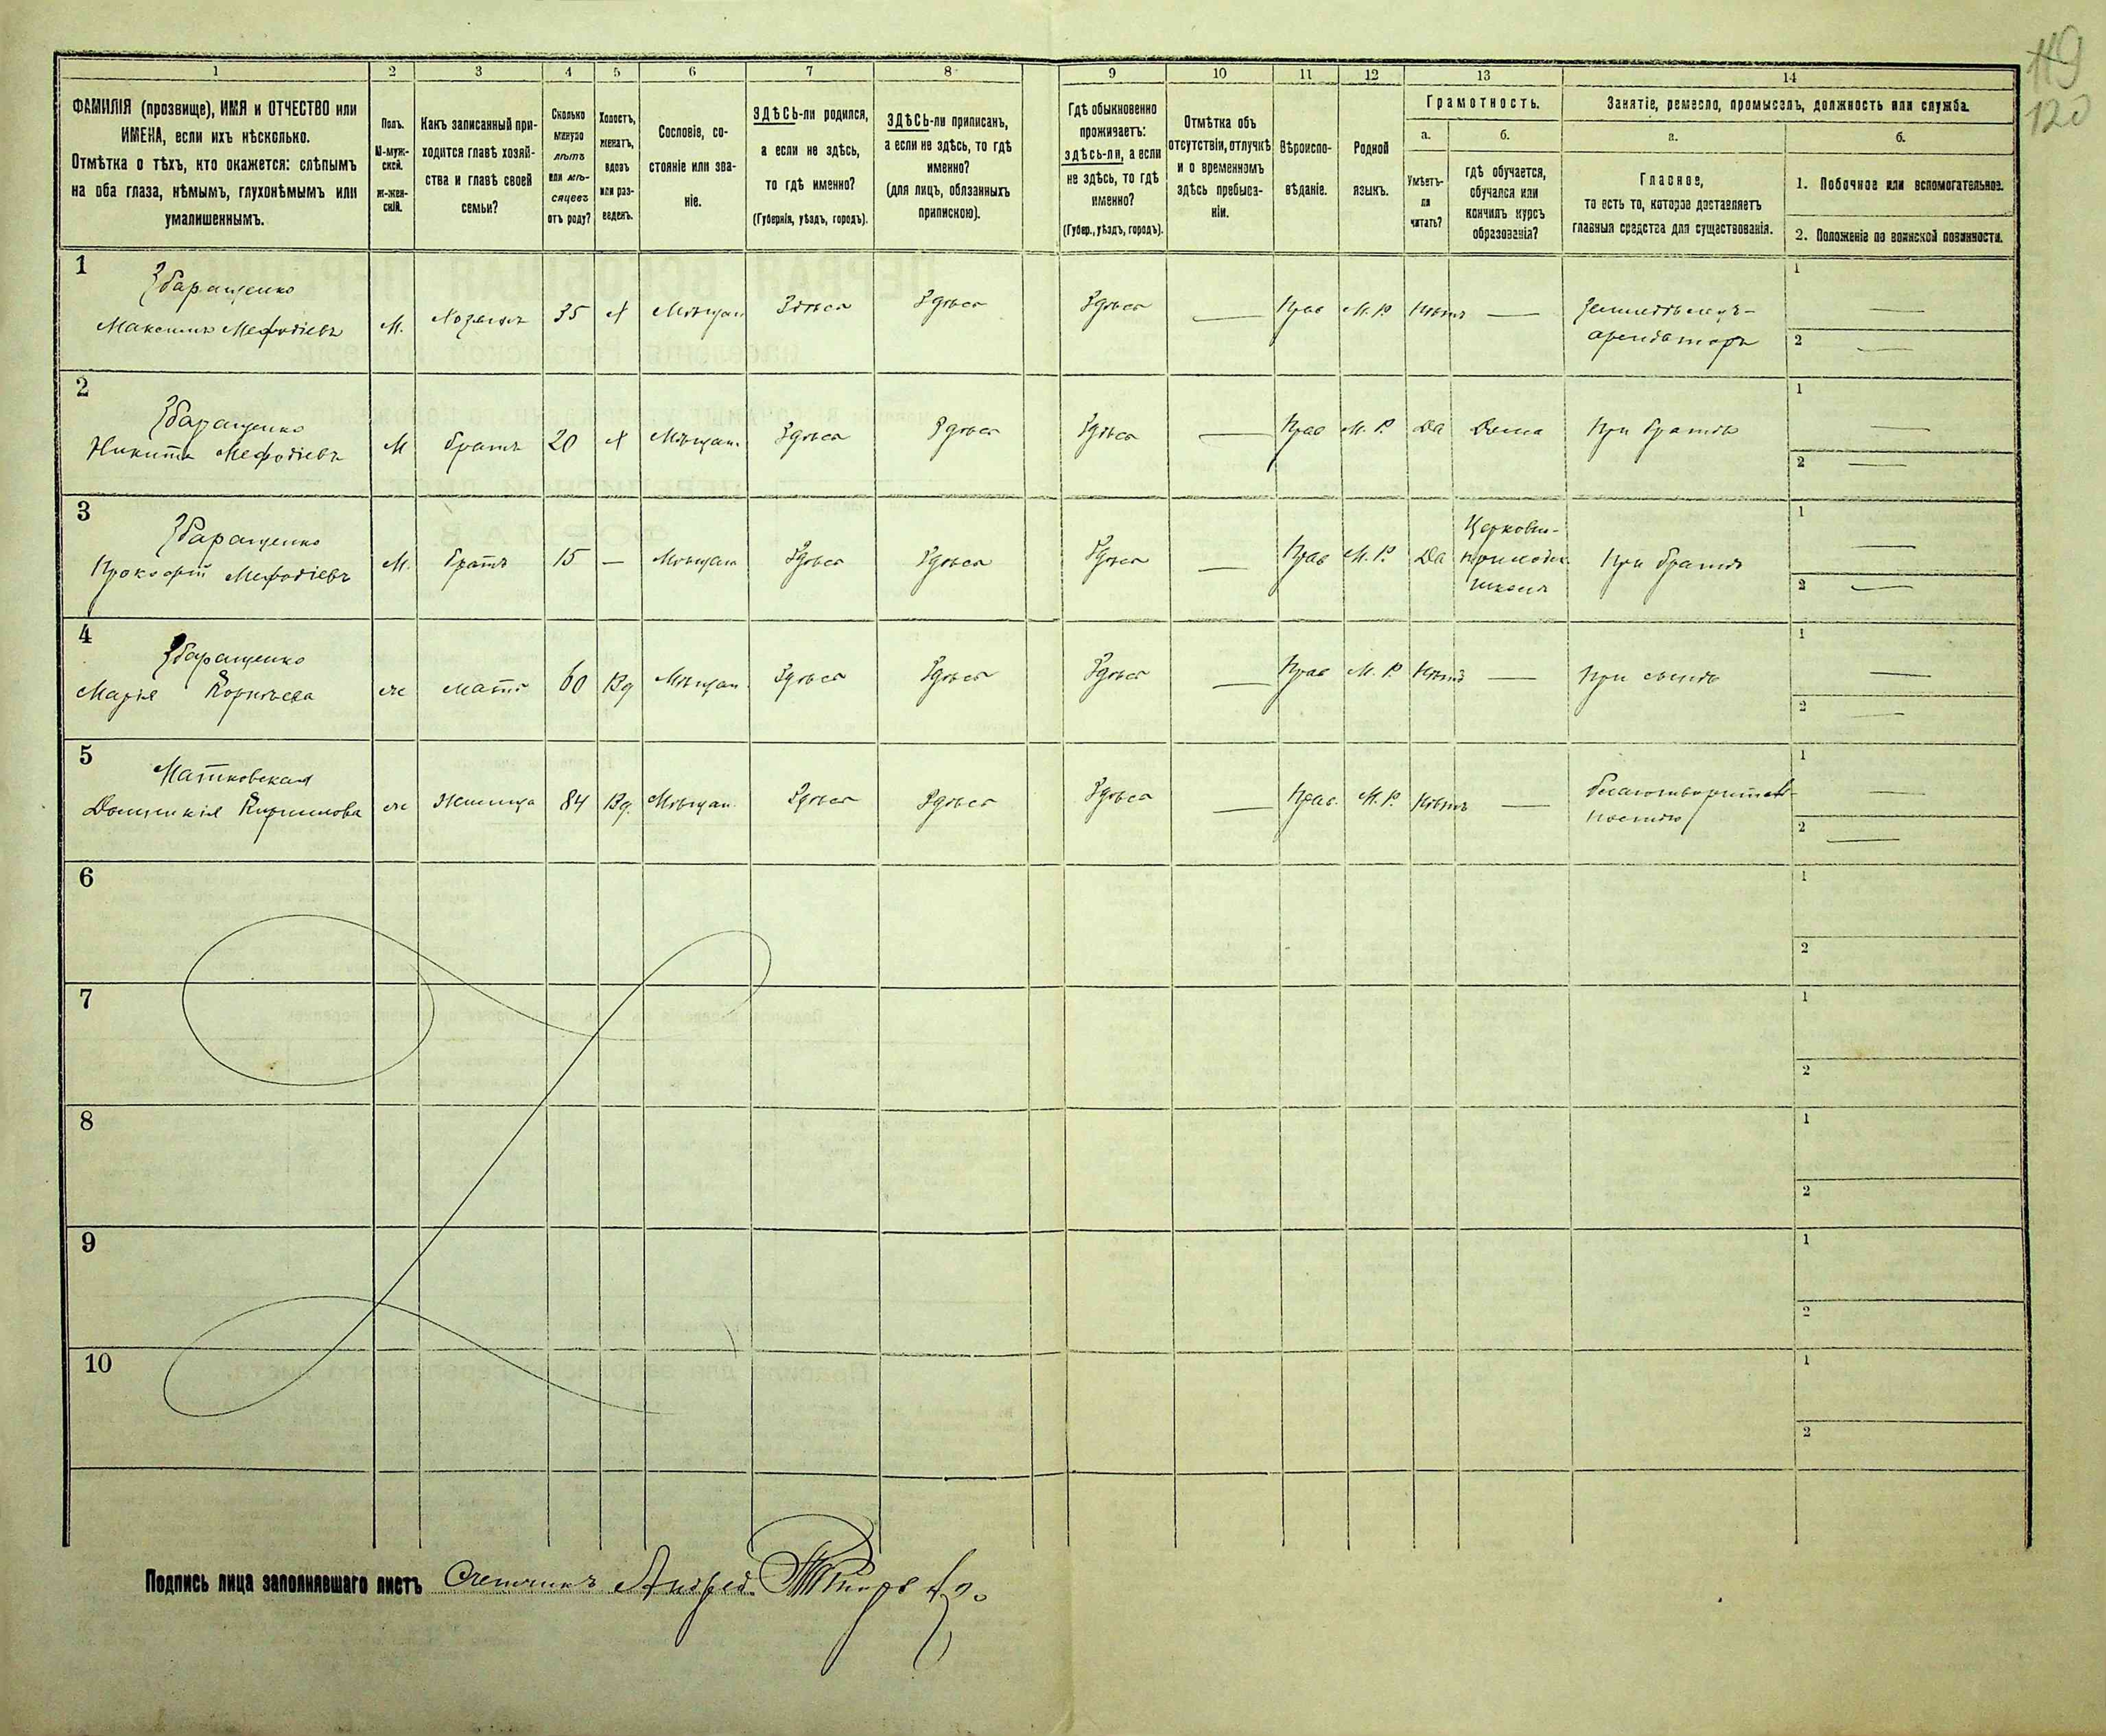 119
120
1 2 3 4 5 6 7 8 9 10 11 12 13 14
ФАМИЛІЯ (прозвище), ИМЯ и ОТЧЕСТВО или
ИМЕНА, если ихъ нѣсколько.
Отмѣтка о тѣхъ, кто окажется: слѣпымъ
на оба глаза, нѣмымъ, глухонѣмымъ или
умалишеннымъ.
Полъ.
М-муж-
ской.
Ж-жен-
скій.
Какъ записанный при-
ходится главѣ хозяй-
ства и главѣ своей
семьи?
Сколько
минуло
лѣтъ
или мѣ-
сяцевъ
отъ роду?
Холостъ,
женатъ,
вдовъ
или раз-
веденъ.
Сословіе, со-
стояніе или зва-
ніе.
ЗДѢСЬ-ли родился,
а если не здѣсь,
то гдѣ именно?
(Губернія, уѣздъ, городъ).
ЗДѢСЬ-ли приписанъ,
а если не здѣсь, то гдѣ
именно?
(для лицъ, обязанныхъ
припискою).
Гдѣ обыкновенно
проживаетъ:
здѣсь-ли, а если
не здѣсь, то гдѣ
именно?
(Губер., уѣздъ, городъ).
Отмѣтка объ
отсутствіи, отлучкѣ
и о временномъ
здѣсь пребыва-
ніи.
Вѣроиспо-
вѣданіе.
Родной
языкъ.
Грамотность.
а.
Умѣетъ-
ли
читать?
б.
гдѣ обучается,
обучался или
кончилъ курсъ
образованія?
Занятіе, ремесло, промыселъ, должность или служба.
а.
Главное,
то есть то, которое доставляетъ
главныя средства для существованія.
б.
1. Побочное или вспомогательное.
2. Положеніе по воинской повинности.
1
Збаращенко
Максимъ Мефодіевъ
М. Хозяинъ 35 Х Мѣщан Здѣсь Здѣсь Здѣсь — Прав М.Р. Нѣтъ — Земледѣлецъ-
арендаторъ
1 —
2 —
2
Збаращенко
Никита Мефодіевъ
М братъ 20 Х Мѣщан. Здѣсь Здѣсь Здѣсь — Прав М.Р. Да Дома При братѣ
1 —
2 —
3
Збаращенко
Прокофій Мефодіевъ
М. братъ 15 — Мѣщан Здѣсь Здѣсь Здѣсь — Прав М.Р. Да Церковн-
приходск.
школѣ
При братѣ
1 —
2 —
4
Збаращенко
Марія Корнѣева
ж мать 60 Вд Мѣщан. Здѣсь Здѣсь Здѣсь — Прав М.Р. Нѣтъ — При сынѣ
1 —
2 —
5
Матковская
Домникія Кирилова
ж Жилица 84 Вд. Мѣщан. Здѣсь Здѣсь Здѣсь — Прав. М.Р. Нѣтъ — благотворитель-
ностію
1 —
2 —
6
1
2
7
1
2
8
1
2
9
1
2
10
1
2
Подпись лица заполнявшаго листъ Счетчикъ Андрей